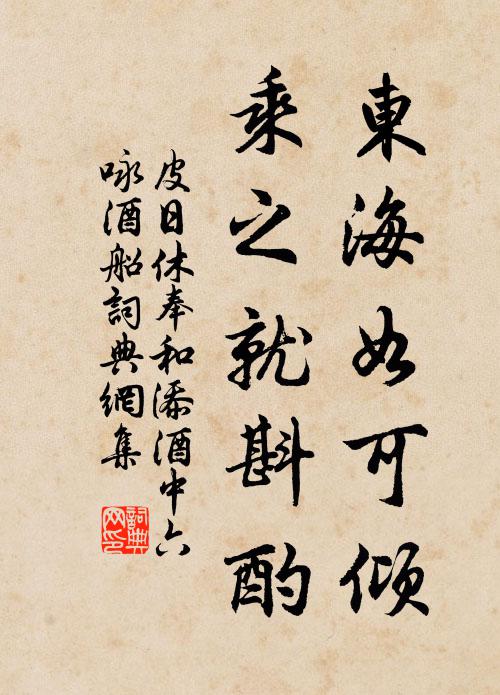 東海如可傾
乘之就斟酌
皮日休奉和添酒中六
咏酒船詞典網集
詞典
网印